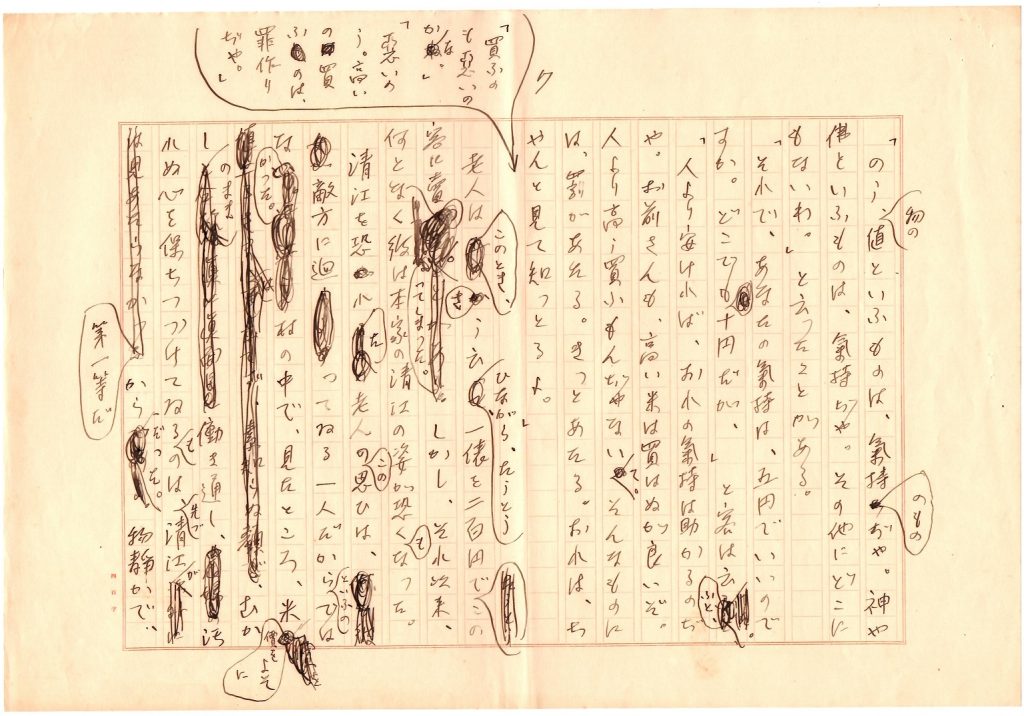 「のう、物の値といふものは、氣持のものぢや。神や
佛といふものは、氣持ぢや。その他にどこに
もないわ。」と云つたことがある。
「それで、あなたの氣持は、五円でいいので
すか。どこでも十円だが、」と客は云ふと、
「人より安ければ、おれの氣持は助かるのぢ
や。お前さんも、高い米は買はぬが良いぞ。
人より高う買ふもんぢやないて。そんなものに
は、罰があたる。きつとあたる。おれは、ち
やんと見て知つとるよ。」
「買ふの
も惡いの
かな。」
「惡いの
う。高い
の買
ふのは、
罪作り
ぢや。」
老人はこのとき、さう云ひながら、たうとう一俵を二百円でこの
客に賣つてしまつた。しかし、それ以来、
何となく彼は本家の清江の姿が恐くもなつた。
清江を恐れた老人のこの思ひは、といふの
敵方に廻つてゐる一人だからでは
なかつた。村の中で、見たところ、米
値をよそに
のまま
働き通し、
れぬ心を保ちつづけてゐるのは清江が
第一等だ
からだつた。物静かで、